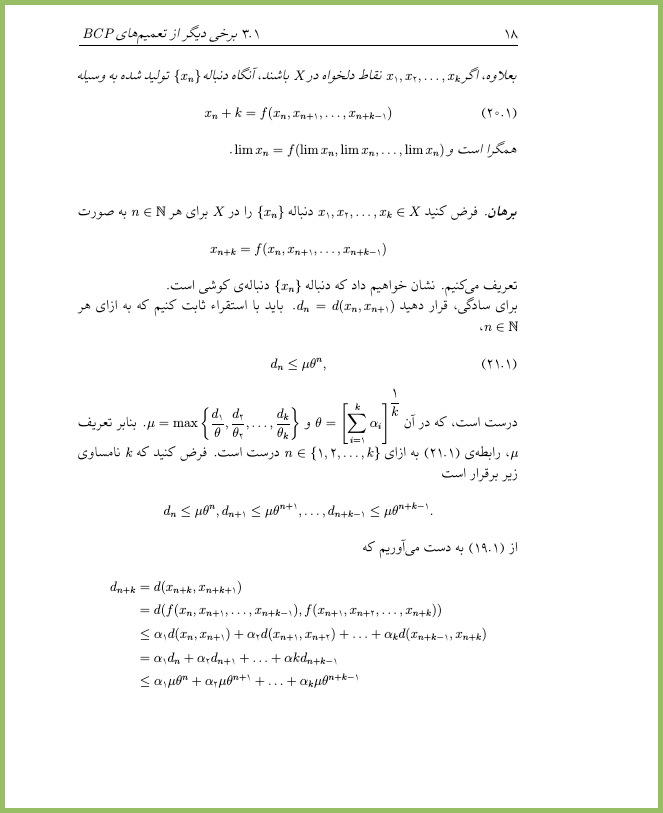 ۱۸ ۳.۱ برخی دیگر از تعمیم‌های BCP
بعلاوه، اگر x۱, x۲, . . . , xk نقاط دلخواه در X باشند، آنگاه دنباله {xn} تولید شده به وسیله
xn + k = f(xn, xn+۱, . . . , xn+k−۱) (۲۰.۱)
همگرا است و lim xn = f(lim xn, lim xn, . . . , lim xn).
برهان. فرض کنید x۱, x۲, . . . , xk ∈ X دنباله {xn} را در X برای هر n ∈ ℕ به صورت
xn+k = f(xn, xn+۱, . . . , xn+k−۱)
تعریف می‌کنیم. نشان خواهیم داد که دنباله {xn} دنباله‌ی کوشی است.
برای سادگی، قرار دهید dn = d(xn, xn+۱). باید با استقراء ثابت کنیم که به ازای هر
n ∈ ℕ،
dn ≤ μθ^n, (۲۱.۱)
درست است، که در آن θ = [∑_{i=۱}^{k} αi]^{۱/k} و μ = max {d۱/θ, d۲/θ۲, . . . , dk/θk}. بنابر تعریف
μ، رابطه‌ی (۲۱.۱) به ازای n ∈ {۱, ۲, . . . , k} درست است. فرض کنید که k نامساوی
زیر برقرار است
dn ≤ μθ^n, dn+۱ ≤ μθ^{n+۱}, . . . , dn+k−۱ ≤ μθ^{n+k−۱}.
از (۱۹.۱) به دست می‌آوریم که
dn+k = d(xn+k, xn+k+۱)
= d(f(xn, xn+۱, . . . , xn+k−۱), f(xn+۱, xn+۲, . . . , xn+k))
≤ α۱d(xn, xn+۱) + α۲d(xn+۱, xn+۲) + . . . + αkd(xn+k−۱, xn+k)
= α۱dn + α۲dn+۱ + . . . + αkdn+k−۱
≤ α۱μθ^n + α۲μθ^{n+۱} + . . . + αkμθ^{n+k−۱}